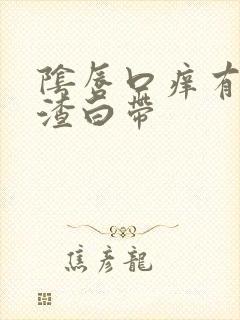 陰唇口痒有
渣白帶
焦彦龍